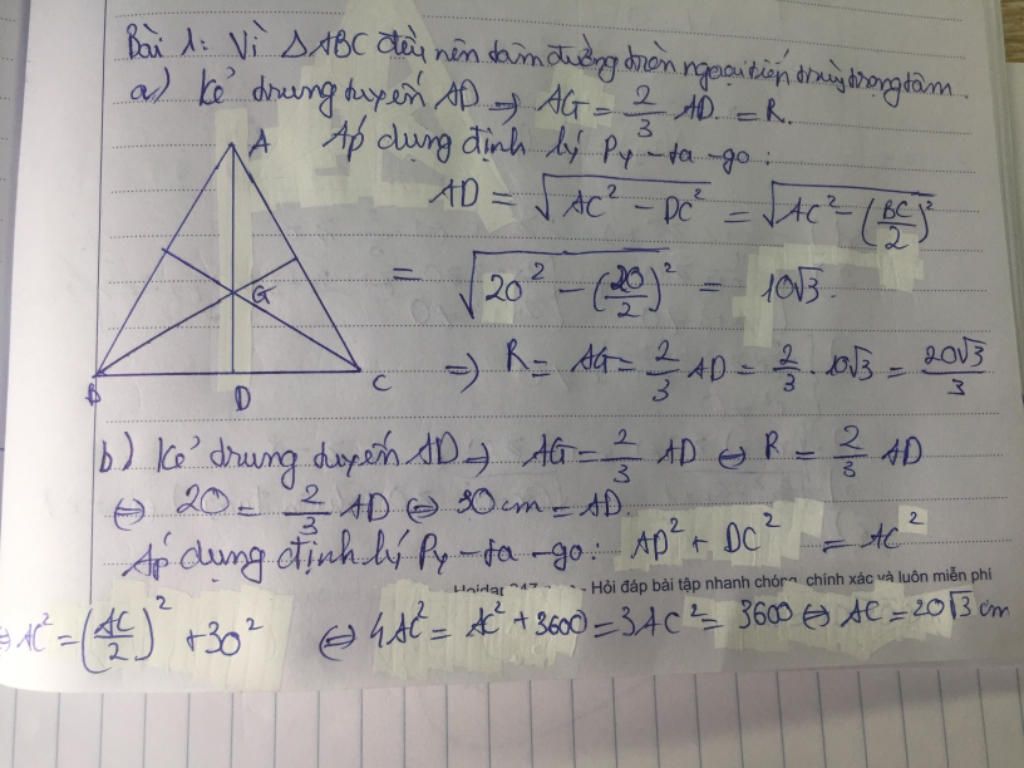 Bài 1: Vì ΔABC đều nên tâm đường tròn ngoại tiếp trùng trọng tâm.
a) Kẻ trung tuyến AD → AG = 2/3 AD. = R.
Áp dụng định lý Py-ta-go:
A
AD = √(AC² - DC²) = √(AC² - (BC/2)²)
= √(20² - (20/2)²) = 10√3.
G
⇒ R = AG = 2/3 AD = 2/3 . 10√3 = 20√3/3
B D C
b) Kẻ trung tuyến AD → AG = 2/3 AD ⇔ R = 2/3 AD
⇔ 20 = 2/3 AD ⇔ 30cm = AD.
Áp dụng định lý Py-ta-go: AD² + DC² = AC²
- Hỏi đáp bài tập nhanh chóng, chính xác và luôn miễn phí
⇔ AC² = (AC/2)² + 30² ⇔ 4AC² = AC² + 3600 = 3AC² = 3600 ⇔ AC = 20√3 cm